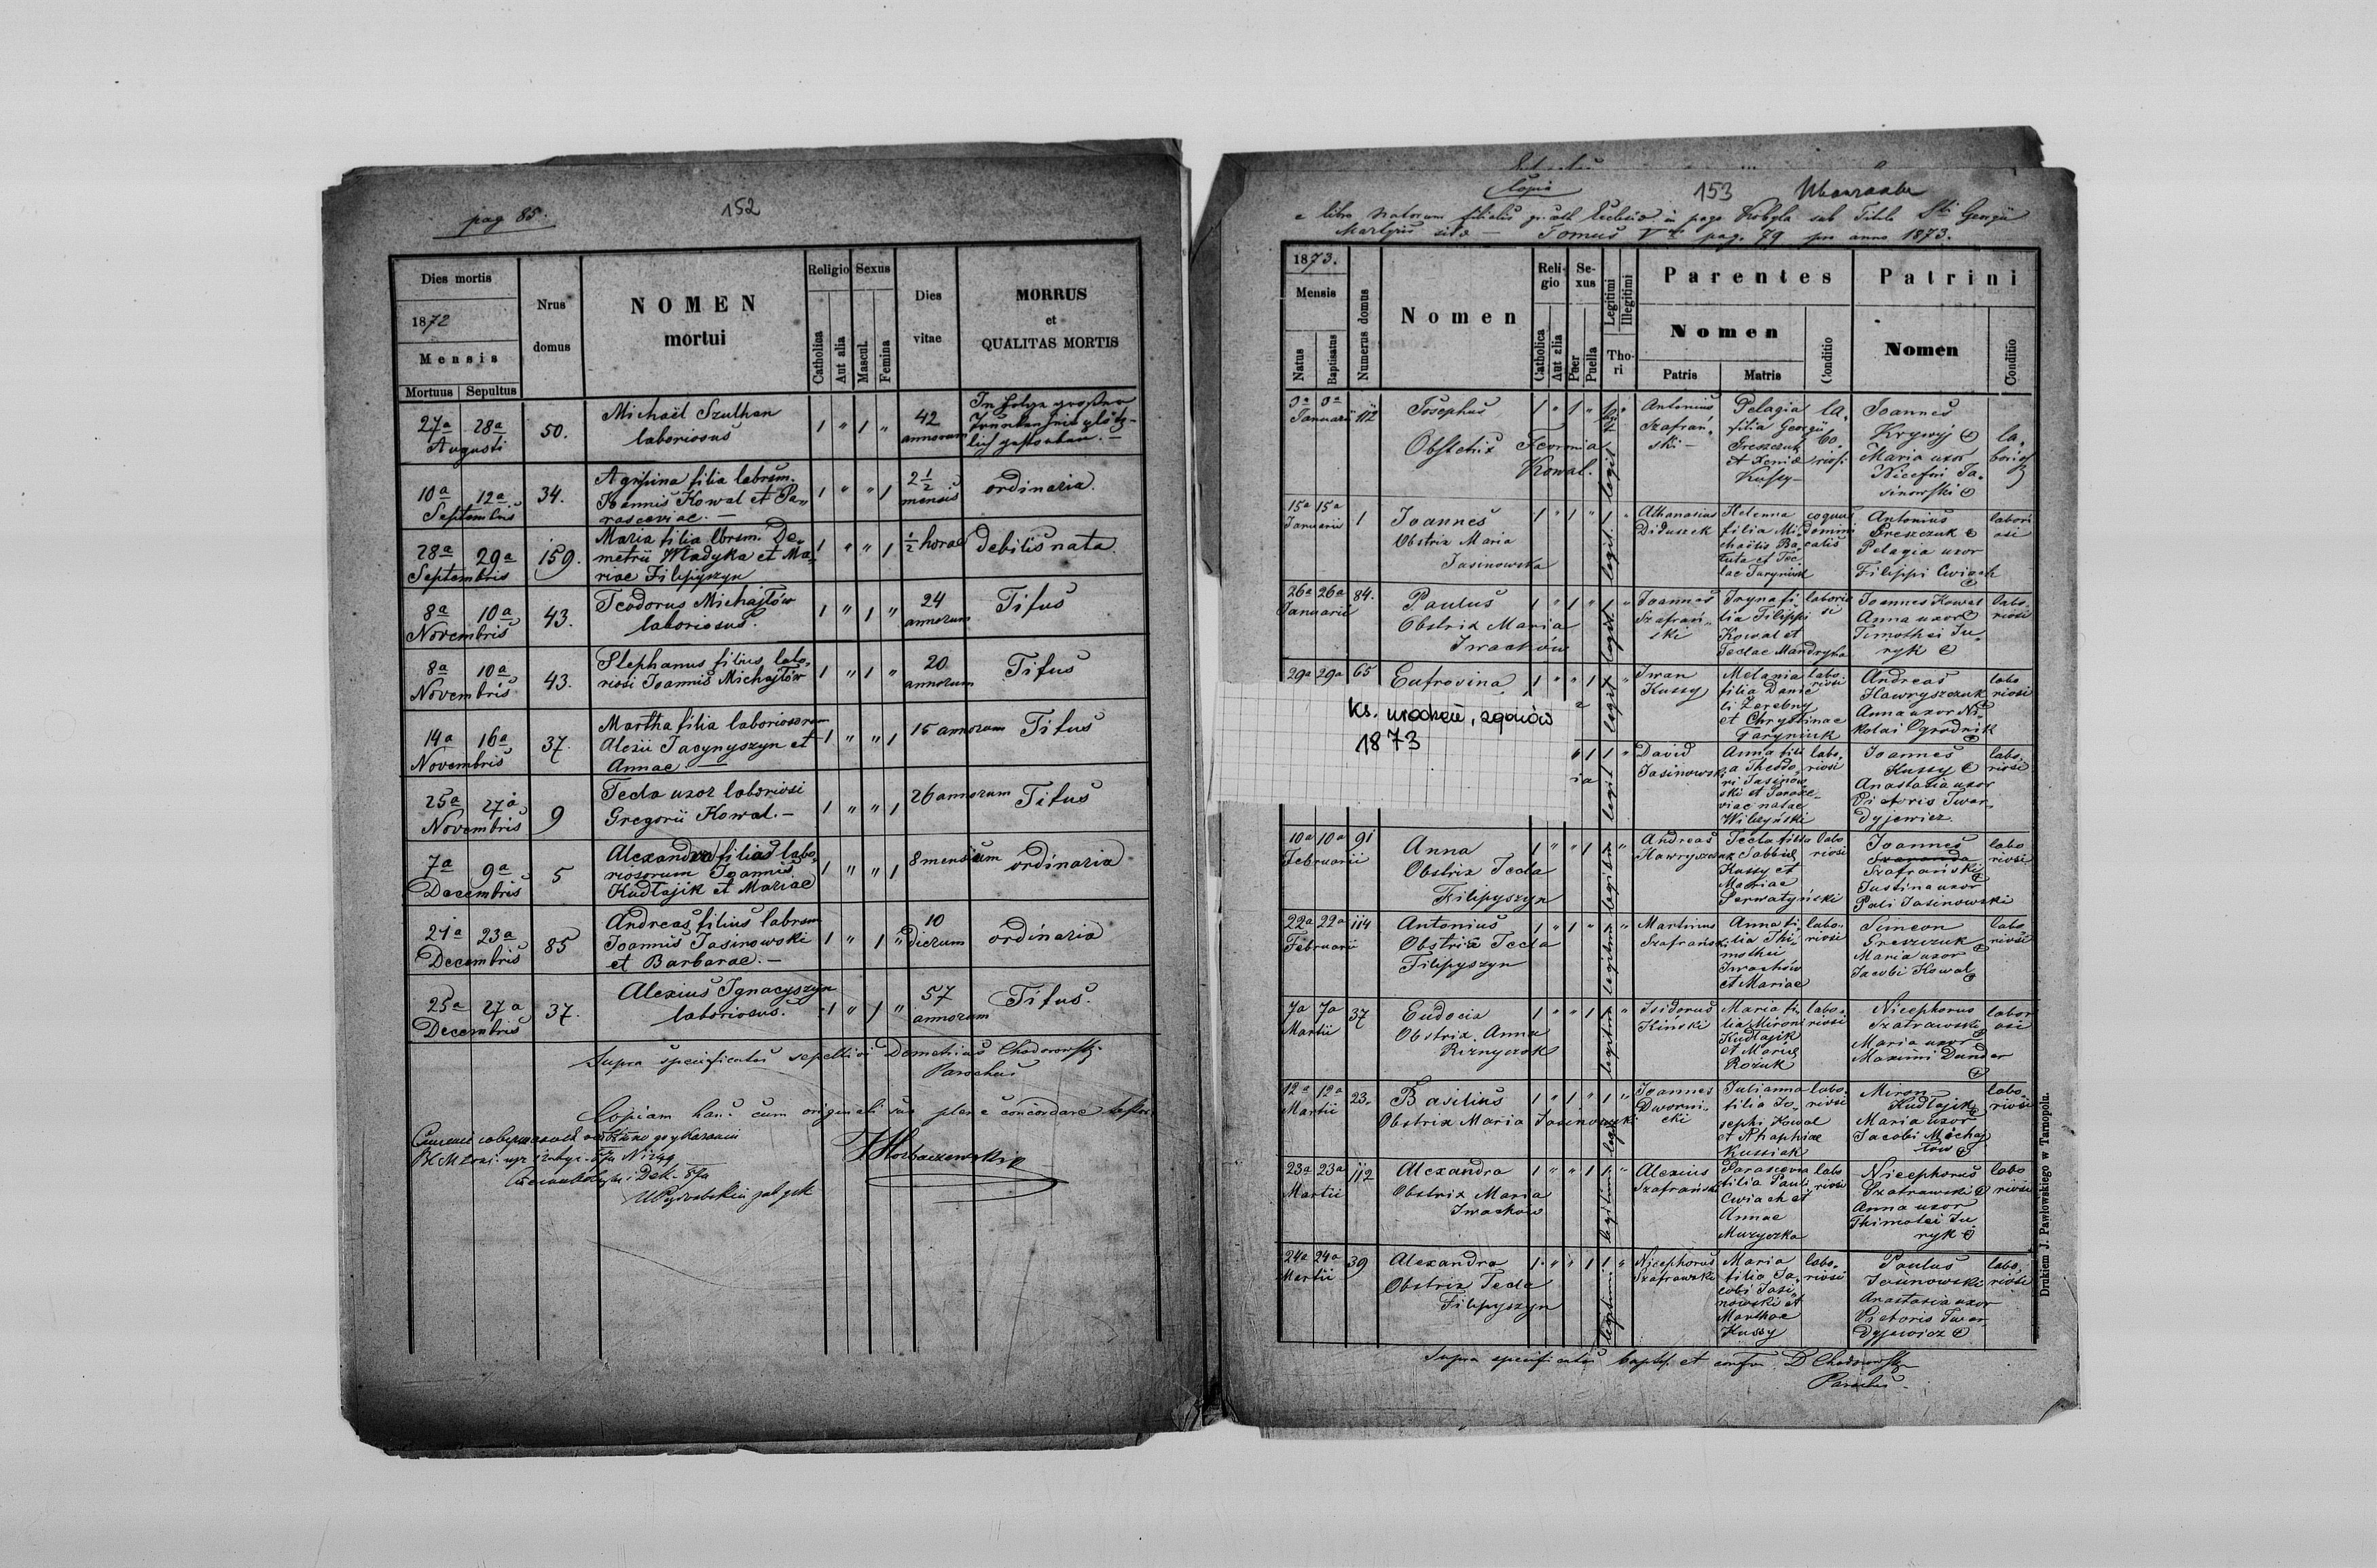 pag 85.
152
Dies mortis
1872
Mensis
Mortuus Sepultus
Nrus domus
NOMEN mortui
Religio
Catholica
Aut alia
Sexus
Mascul.
Femina
Dies vitae
MORRUS et QUALITAS MORTIS
27a 28a Augusti
50.
Michaël Szulhan
laboriosus
1 " 1 "
42 annorum
10a 12a Septembris
34.
Agripina filia labrsm.
Ioannis Kowal et Pa„
rasceviae.—
1 " " 1
2 1/2 mensis
ordinaria.
28a 29a Septembris
159.
Maria filia lbrsm. De„
metrii Władyka et Ma„
riae Filipyszyn
1 " " 1
1/2 horae
debilis nata.
8a 10a Novembris
43.
Teodorus Michajłów
laboriosus.
1 " 1 "
24 annorum
Tifus
8a 10a Novembris
43.
Stephanus filius labo„
riosi Joannis Michajłów
1 " 1 "
20 annorum
Tifus
14a 16a Novembris
37.
Martha filia laboriosorum
Alexii Jacynyszyn et
Annae —
1 " " 1
15 annorum
Tifus
25a 27a Novembris
9
Tecla uxor laboriosi
Gregorii Kowal.—
1 " " 1
26 annorum
Tifus
7a 9a Decembris
5
Alexandra filia labo„
riosorum Joannis
Kudłajik et Mariae
1 " " 1
8 mensium
ordinaria
21a 23a Decembris
85
Andreas filius labrsm
Joannis Jasinowski
et Barbarae.—
1 " 1 "
10 dierum
ordinaria
25a 27a Decembris
37.
Alexius Ignacyszyn
laboriosus.
1 " 1 "
57 annorum
Tifus.
Supra specificatos sepelivi Demetrius Chodorowski
Parochus
Copiam hanc cum originali suo plene concordare testor
Horbaczewski
Copia
153
e libro Natorum filialis gr. cath Ecclesiae in pago Kobyla sub Titulo Sti Georgii
Martyris sitae — Tomus V pag. 79 pro anno 1873.
1873.
Mensis
Natus
Baptisatus
Numerus domus
Nomen
Religio
Catholica
Aut alia
Sexus
Puer
Puella
Legitimi
Illegitimi
Thori
Parentes
Nomen
Patris
Matris
Conditio
Patrini
Nomen
Conditio
Januarii 112
Josephus
Obstetrix Fewronia
Kowal.
Antonius
Szafrań„
ski—
Pelagia
filia Georgii
Greszczuk
et Xeniae
Kussy—
Joannes
Krywyj
Maria uxor
Nicefori Ja„
sinowski
15a 15a Januarii 1
Joannes
Obstrix Maria
Jasinowska
Athanasius
Diduseck
Helenna
filia Mi„
chaëlis Ba„
tuta et Tec„
lae Taryniuk
coquus
dominicalis
Antonius
Greszczuk
Pelagia uxor
Filippi Cwiach
laboriosi
26a 26a Januarii 84.
Paulus
Obstrix Maria
Iwachów
Joannes
Szafrań„
ski
Iryna fi„
lia Filippi
Kowal et
Teclae Mandryka
laboriosi
Joannes Kowal
Anna uxor
Timothei Ju„
ryk
laboriosi
29a 29a 65
Eufrosina
Iwan
Kussy
Melania
filia Danie
li Zarebny
et Chrystinae
Taryniuk
laboriosi
Andreas
Hawryszczuk
Anna uxor Ni„
kolai Ogrodnik
laboriosi
Ks. urodzeń, zgonów
1873
David
Jasinowski
Anna fili
a Theodo„
ri Jasinow
ski et Parasce„
viae natae
Wilczyński
laboriosi
Joannes
Kussy
Anastasia uxor
Victoris Twar„
dyjewicz
laboriosi
10a 10a Februarii 91
Anna
Obstrix Tecla
Filipyszyn
Andreas
Hawryszczuk
Tecla filia
Sabbae
Kussy et
Mariae
Perwatyński
laboriosi
Joannes
Szafrański
Justina uxor
Pauli Jasinowski
laboriosi
22a 22a Februarii 114
Antonius
Obstrix Tecla
Filipyszyn
Martinus
Szafrański
Anna fi„
lia Thi„
mothei
Iwachów
et Mariae
laboriosi
Simeon
Greszczuk
Maria uxor
Jacobi Kowal
laboriosi
7a 7a Martii 37
Eudocia
Obstrix. Anna
Riznyczok
Isidorus
Kinski
Maria fi„
lia Mironi
Kudłajik
et Mariae
Rożuk
laboriosi
Nicephorus
Szafrawski
Maria uxor
Maximi Dunder
laboriosi
12a 12a Martii 23.
Basilius
Obstrix Maria Jasinowski
Joannes
Dworni„
cki
Julianna
filia Jo„
sephi Kowal
et Ahaphiae
Kussiak
laboriosi
Miron
Kudłajik
Maria uxor
Jacobi Michaj
łów
laboriosi
23a 23a Martii 112
Alexandra
Obstrix Maria
Iwachów
Alexius
Szafrański
Parascevia
filia Pauli
Cwiach et
Annae
Muzyczka
laboriosi
Nicephorus
Szafrawski
Anna uxor
Thimotei Ju„
ryk
laboriosi
24a 24a Martii 39
Alexandra
Obstrix Tecla
Filipyszyn
Nicephorus
Szafrawski
Maria
filia Ja„
cobi Jasi„
nowski et
Marthae
Kussy
laboriosi
Paulus
Jasinowski
Anastasia uxor
Victoris Twar„
dyjewicz
laboriosi
Supra specificatos bapts. et confir. D Chodorowski
Parochus.
Drukiem J. Pawłowskiego w Tarnopolu.